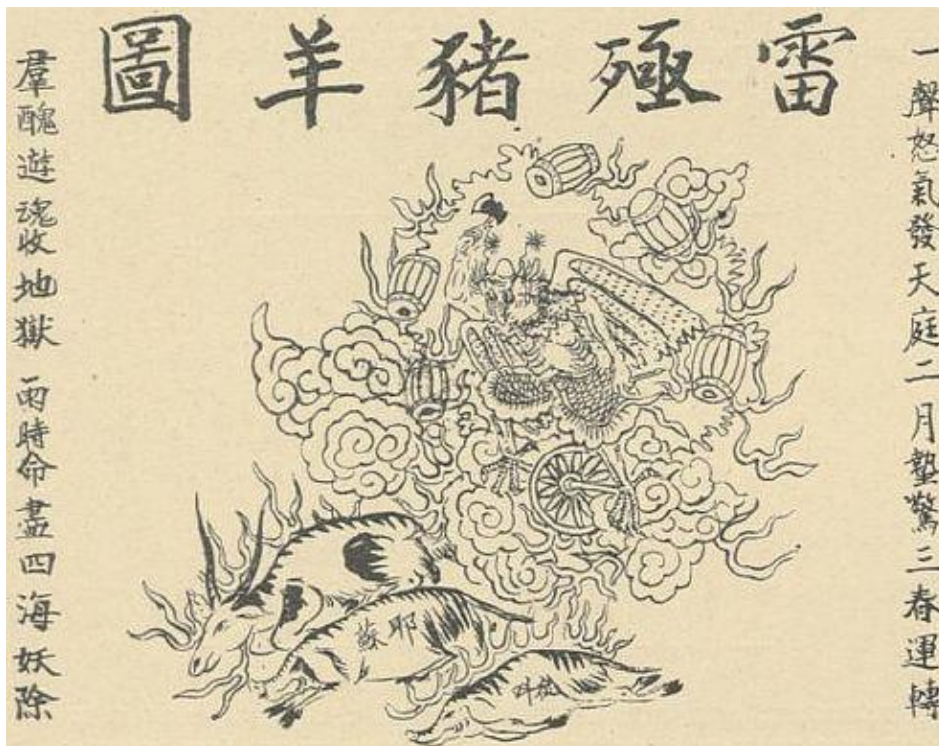 雷殛豬羊圖
一聲怒氣發天庭二月蟄驚三春運轉
羣醜遊魂收地獄兩時命盡四海妖除
耶蘇